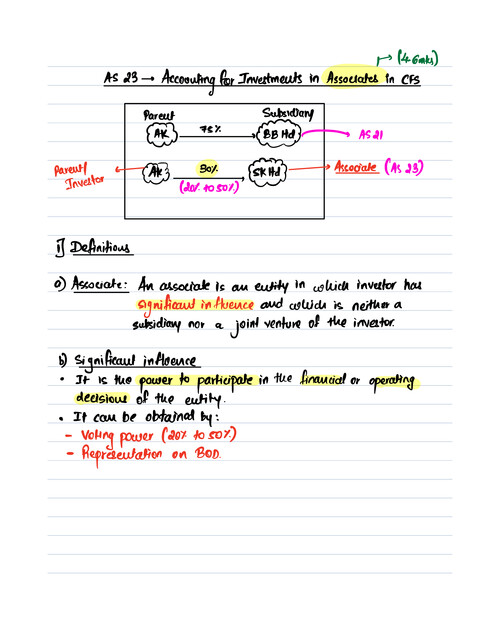 (4-6mks)
AS 23 → Accounting for Investments in Associates in CFS
Parent Subsidiary
AK 75% BB Hd AS 21
Parent/ Investor AK 30% SK Hd Associate (AS 23)
(20% to 50%)
1) Definitions
a) Associate: An associate is an entity in which investor has
significant influence and which is neither a
subsidiary nor a joint venture of the investor.
b) Significant influence
• It is the power to participate in the financial or operating
decisions of the entity.
• It can be obtained by:
- Voting power (20% to 50%)
- Representation on BOD.